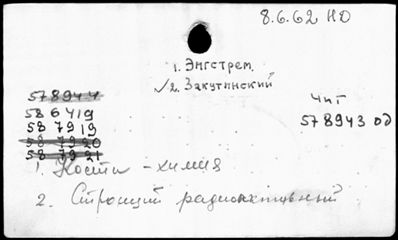 8.6.62 НО
1. Энгстрем.
√2. Закутинский
578944
586419
587919
587920
587921
Чит
578943 од
1. Кости - химия
2. Стронций радиоактивный